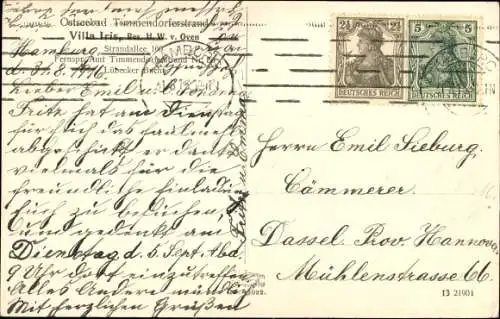 Ostseebad Timmendorferstrand
Villa Iris, Bes. H. W. v. Oven
Strandallee 100
Fernspr. Amt Timmendorferstrand Nr.
Lübecker Bucht
Hamburg
d. 31. 8. 1916
Lieber Emil u.
Fritz hat am Dienstag
für sich das
abgeschickt er dankt
vielmals für die
freundliche Einladung
Euch zu besuchen,
und gedenkt am
Dienstag d. 5. Sept. Abd.
9 Uhr dort einzutreffen.
Alles Andere mündlich
Mit herzlichen Grüßen
2½ 2½
DEUTSCHES REICH
5 5
DEUTSCHES REICH
Herrn Emil Sieburg.
Cämmerer.
Dassel. Prov. Hannover
Mühlenstrasse 66.
13 21901